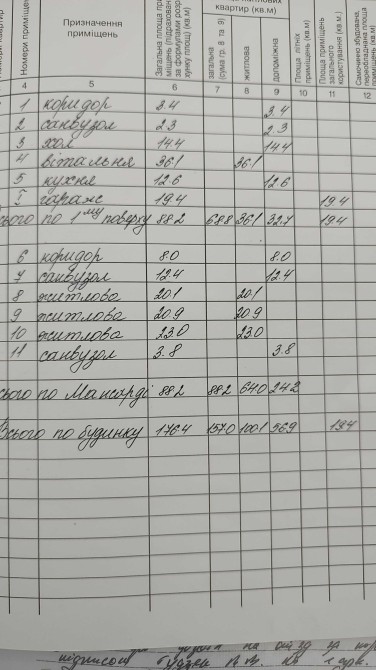 Номери приміщень
Призначення приміщень
Загальна площа
квартир (кв.м)
загальна (сума гр. 8 та 9)
житлова
допоміжна
Площа літніх приміщень (кв.м)
Площа приміщень загального користування (кв.м.)
Самочинно збудована, переобладнана площа приміщень (кв.м)
4 5 6 7 8 9 10 11 12
1 коридор 3.4 3.4
2 санвузол 2.3 2.3
3 хол 14.4 14.4
4 вітальня 36.1 36.1
5 кухня 12.6 12.6
I гараж 19.4 19.4
сього по 1му поверху 88.2 68.8 36.1 32.7 19.4
6 коридор 8.0 8.0
7 санвузол 12.4 12.4
8 житлова 20.1 20.1
9 житлова 20.9 20.9
10 житлова 23.0 23.0
11 санвузол 3.8 3.8
сього по Мансарді 88.2 88.2 64.0 24.2
Всього по будинку 176.4 157.0 100.1 56.9 19.4